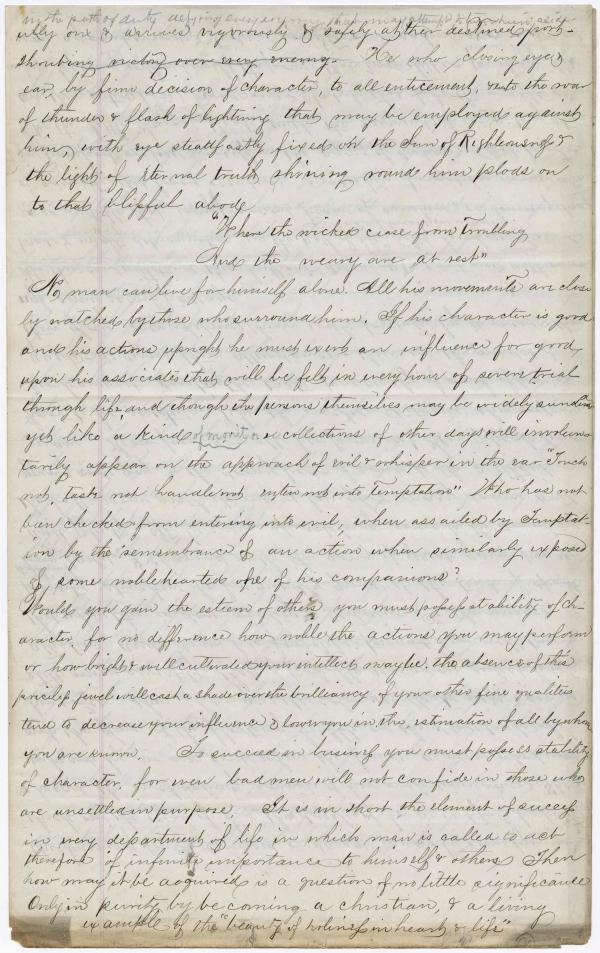 in the path of duty defying every enemy that may attempt to push him aside
ully on & arrives vigorously & safely at their destined port
Shouting victory over every enemy. He who closing eye &
ear, by firm decision of character, to all enticement, & to the roar
of thunder & flash of lightning that may be employed against
him, with eye steadfastly fixed on the Sun of Righteousness &
the light of eternal truth shining round him plods on
to that blissful abode
"Where the wicked cease from Troubling
And the weary are at rest"
No man can live for himself alone. All his movements are close
ly watched by those who surround him. If his character is good
and his actions upright he must exert an influence for good
upon his associates that will be felt in every hour of severe trial
through life and though the persons themselves may be widely sundered
yet like a kind of monitor recollections of other days will involun
tarily appear on the approach of evil & whisper in the ear "Touch
not, taste not handle not enter not into Temptation" Who has not
been checked from entering into evil, when assailed by Temptat-
ion by the remembrance of an action when similarly exposed
of some noblehearted one of his companions?
Would you gain the esteem of others you must possess stability of ch-
aracter for no difference how noble the actions you may perform
or how bright & well cultivated your intellect may be, the absence of this
priceless jewel will cast a shade over the brilliancy of your other fine qualities
tend to decrease your influence & lower you in the estimation of all by whom
you are known. To succeed in business you must possess stability
of character, for even bad men will not confide in those who
are unsettled in purpose. It is in short the element of success
in every department of life in which man is called to act
therefore of infinite importance to himself & others Then
how may it be acquired is a question of no little significance
Only in purity by becoming a christian, & a living
example of the "beauty of holiness in heart & life"